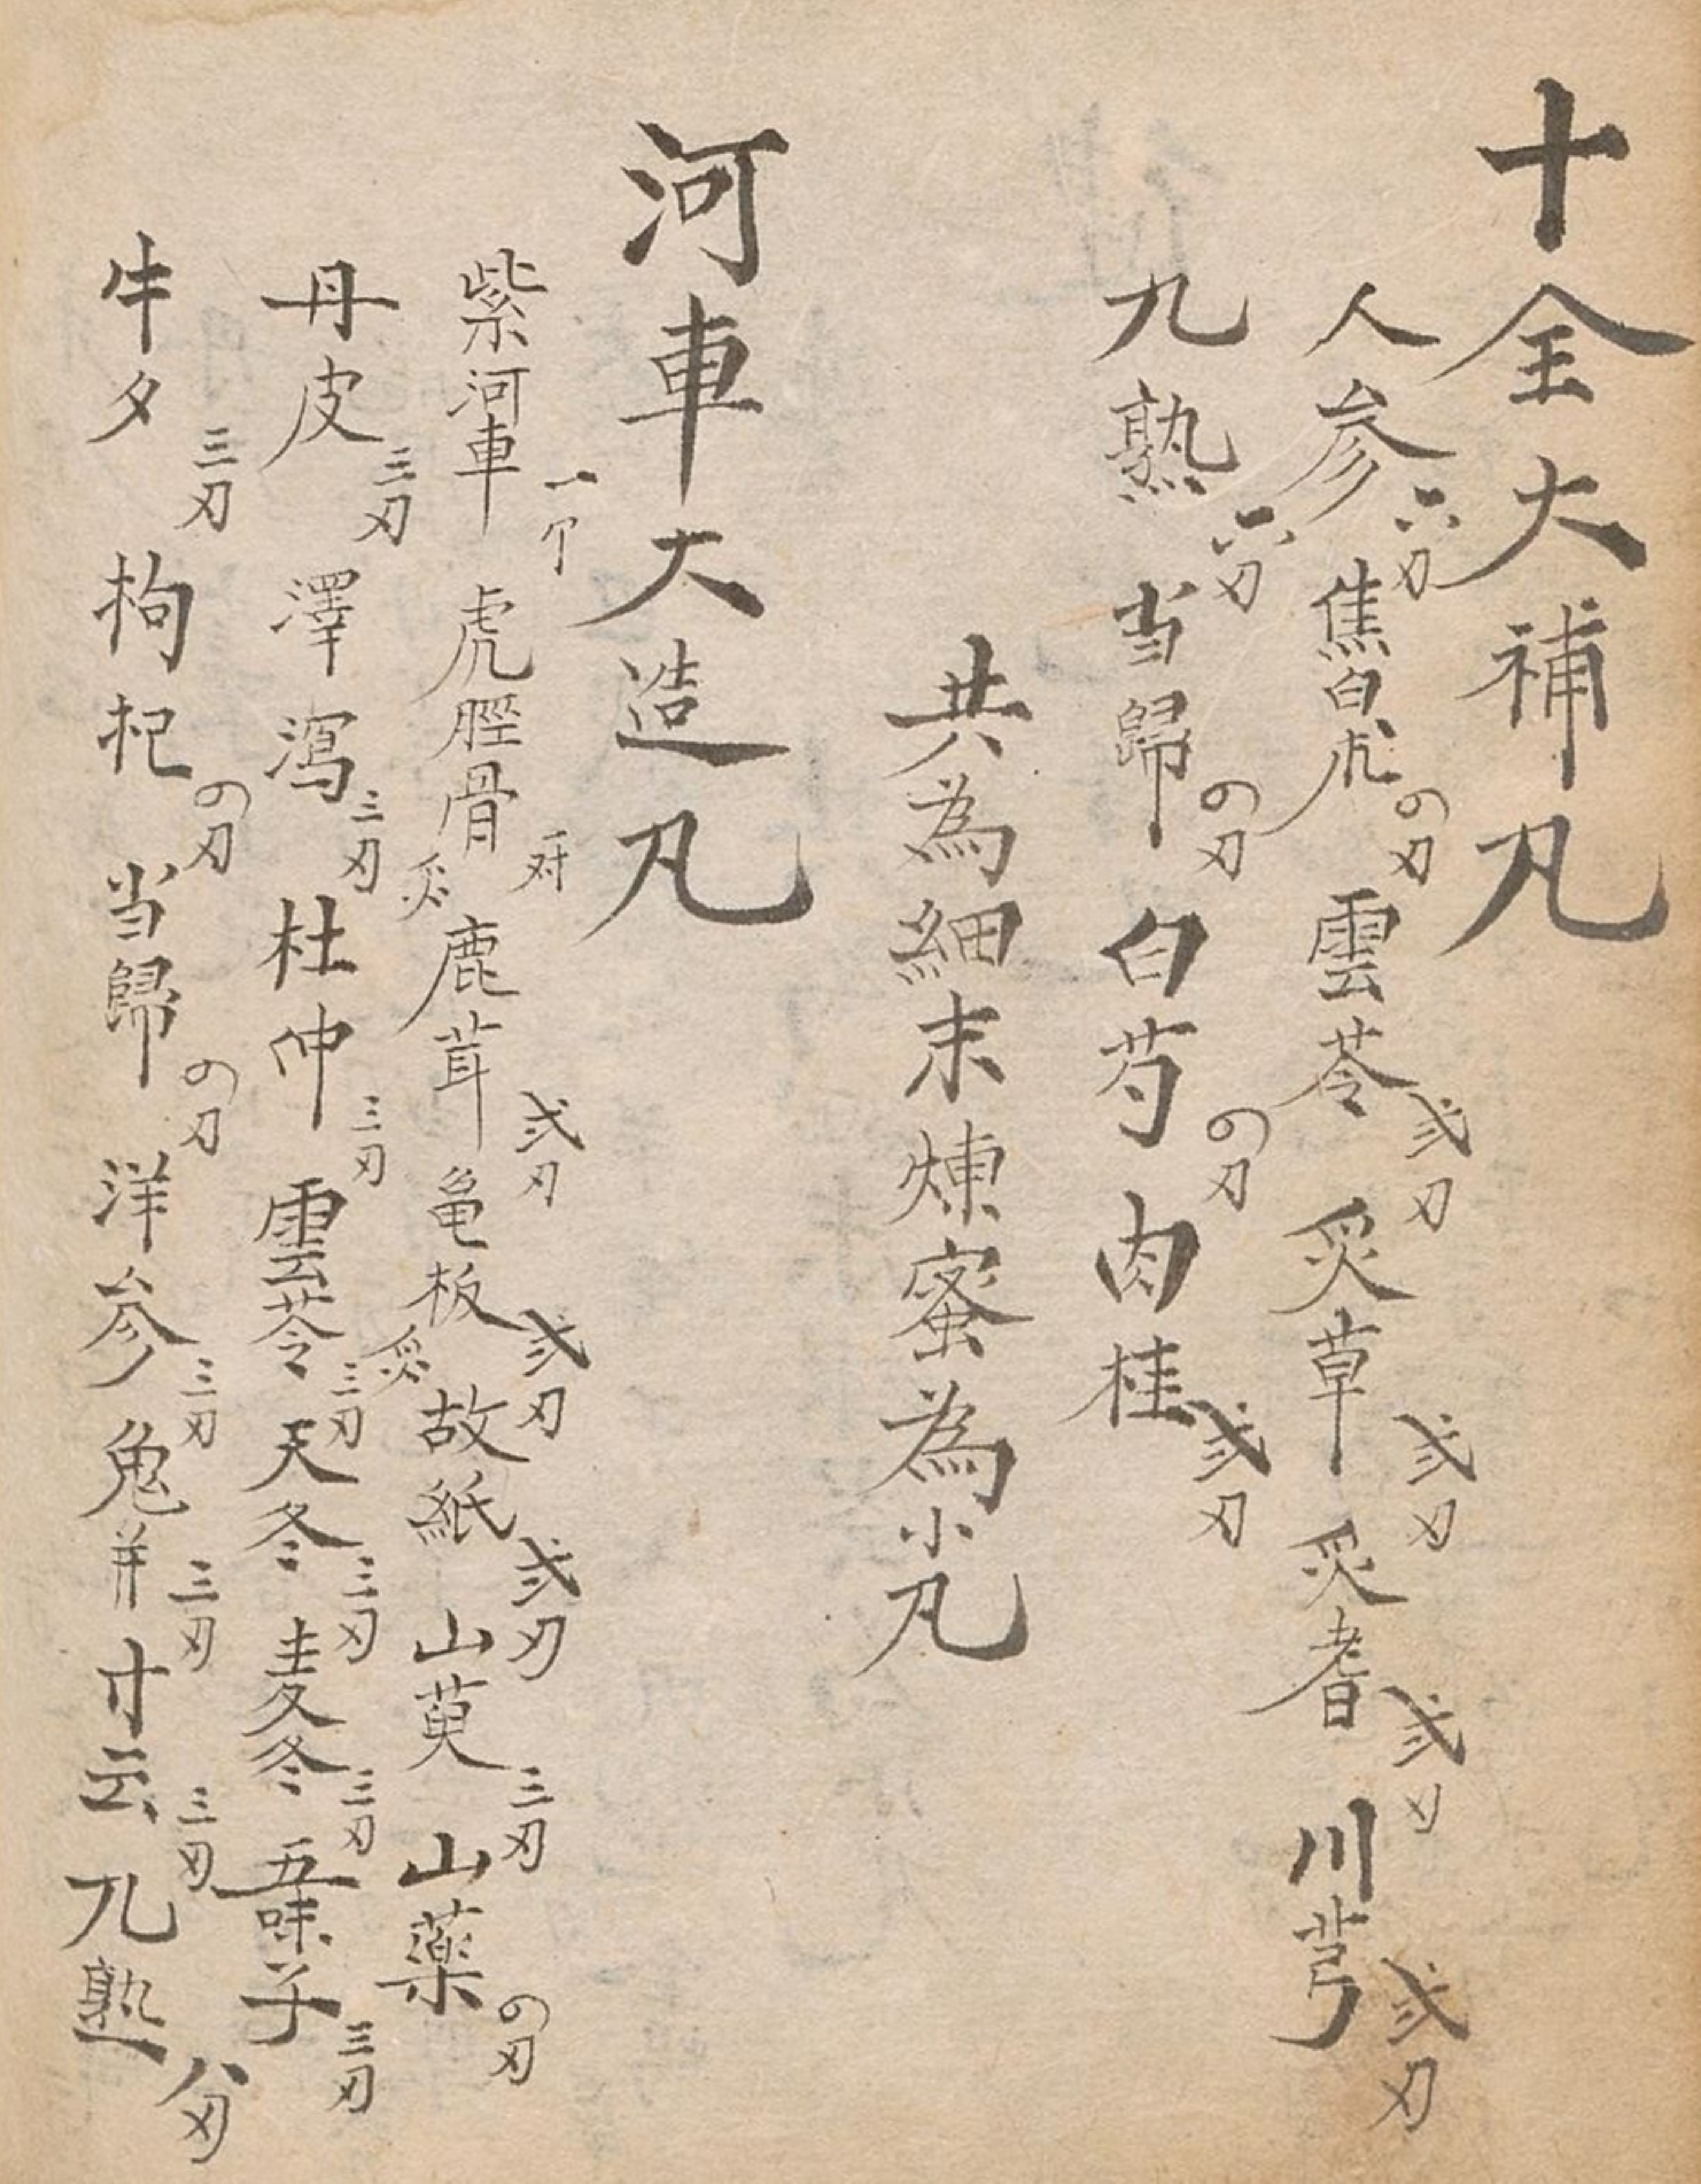 十全大補凡
人参六刄焦白朮の刄雲苓弍刄炙草弍刄炙耆弍刄川芎弍刄
九熟六刄当歸の刄白芍の刄肉桂弍刄
共為細末煉蜜為小凡
河車大造凡
紫河車一个虎脛骨炙鹿茸弍刄龟板炙弍刄故紙弍刄山萸三刄山藥の刄
丹皮三刄澤瀉三刄杜仲三刄雲苓三刄天冬三刄麦冬三刄五味子三刄
牛夕三刄枸杞の刄当歸の刄洋参三刄兔并三刄寸云三刄九熟八刄